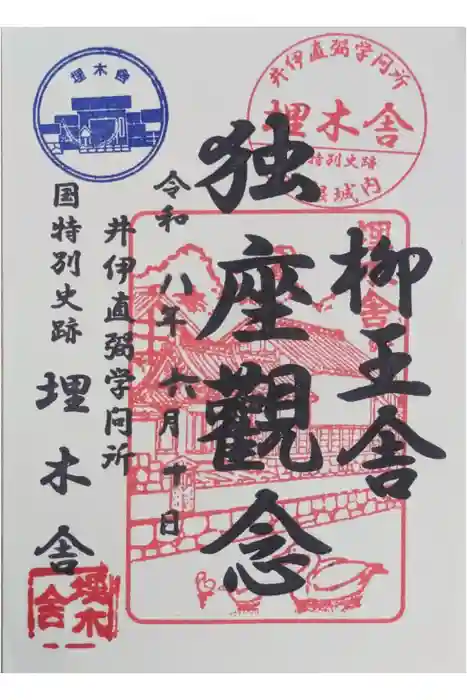 柳王舎
独座觀念
令和八年六月十日
井伊直弼学問所
国特別史跡 埋木舎
井伊直弼学問所
埋木舎
特別史跡
城内
埋木舎
埋木舎
埋木舎